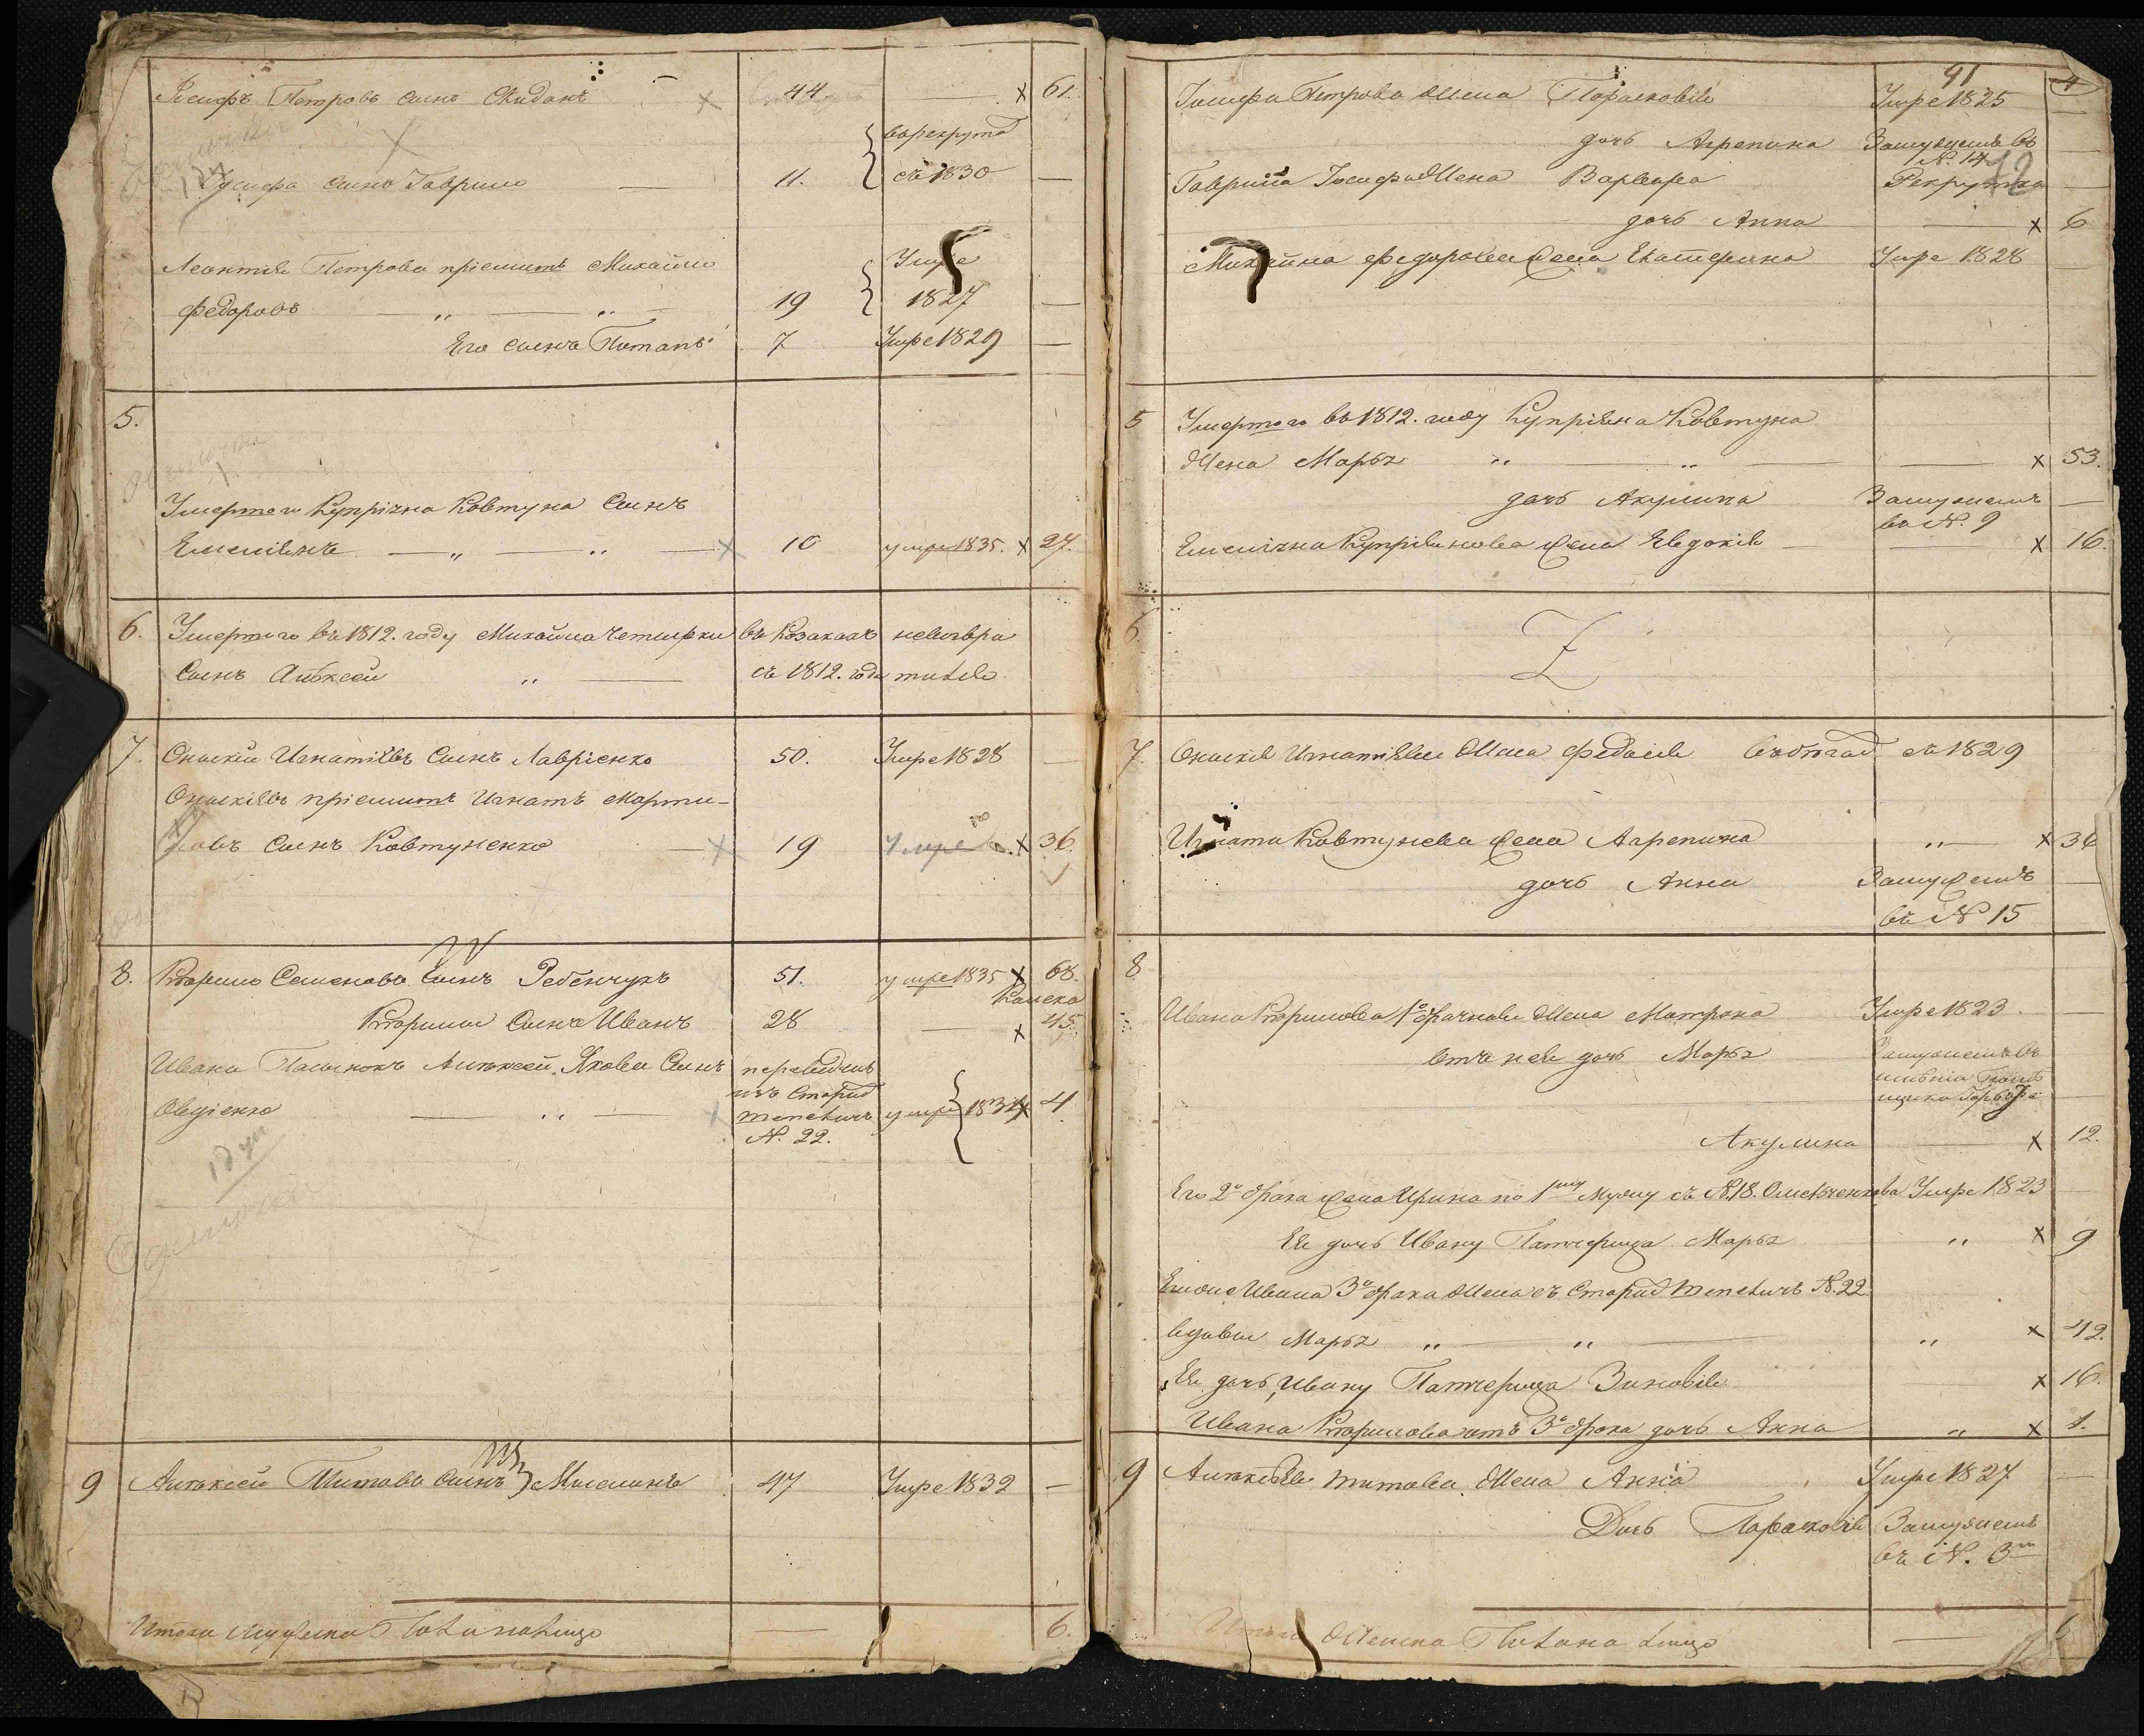 Іосифъ Петровъ сынъ Скиданъ — 44. — × 61.
въ рекрутах
Іусифа сынъ Гаврило — 11. съ 1830 —
Леонтия Петрова пріемышъ Михайло Умре
Федоровъ — „ — „ — 19 1827 —
Его сынъ Потапъ 7 Умре 1829 —
5.
Умершего Купріяна Ковтуна Сынъ
Емелиянъ — „ — „ — × 10 умре 1835. × 27.
6. Умершего въ 1812. году Михайла Четырки въ козакахъ невозвра
Сынъ Алѣксей „ — съ 1812. года тился
7. Онискій Игнатіевъ Сынъ Лавріенко 50. Умре 1828 —
Онискіевъ пріемышъ Игнатъ Марти-
новъ Сынъ Ковтуненко — × 19 Умре × 36.
8. Кирило Семеновъ Сынъ Ребенчукъ 51. умре 1835 × 68.
Кирилы Сынъ Иванъ 28 — × 45.
Ивана Пасынокъ Алѣксей Яковъ Сынъ переведенъ
Овдіенко — „ — изъ Старид умре 1834 × 4
N. 22.
9 Алѣксей Титовъ Сынъ Мисанъ 47 Умре 1832 —
Итого Мужеска Пола налицо — 6.
91 4
Іосифа Петрова Жена Парасковия Умре 1825 —
дочь Агрепина Замужемъ въ
N. 14 —
12
Гаврила Іосифа Жена Варвара Рекрутка —
дочь Анна — × 6
Михайла Федорова жена Екатерина Умре 1828 —
5 Умершого въ 1812. году Купріяна Ковтуна
Жена Марья „ — „ — × 53.
дочь Акулина Замужемъ —
въ N. 9
Емеліяна Купріянова жена Евдокія — × 16.
6. Z
7. Онискія Игнатіева Жена Федосія въ бѣгах съ 1829
Игната Ковтунова жена Агрепина „ — × 34
дочь Анна Замужемъ —
въ N 15
8
Ивана Кирилова 1го брака Жена Матрона Умре 1823. —
отъ нея дочь Марья Замужемъ въ
имѣніи Помѣ
щика
Акулина — × 12.
Его 2го брака жена Ирина по 1му мужу съ N. 18. Омельченкова Умре 1823
Ея дочь Ивану Патчерица Марья „ × 9
Ивана 3го брака Жена съ Старид N. 22.
вдова Марья „ — „ — „ × 42.
Ея дочь, Ивану Патчерица Зиновія × 16.
Ивана Кирилова отъ 3го брака дочь Анна „ × 1.
9 Алѣксѣя Титова Жена Анна Умре 1827 —
Дочь Парасковія Замужемъ
въ N. 3
Итого Женска Пола на лицо —